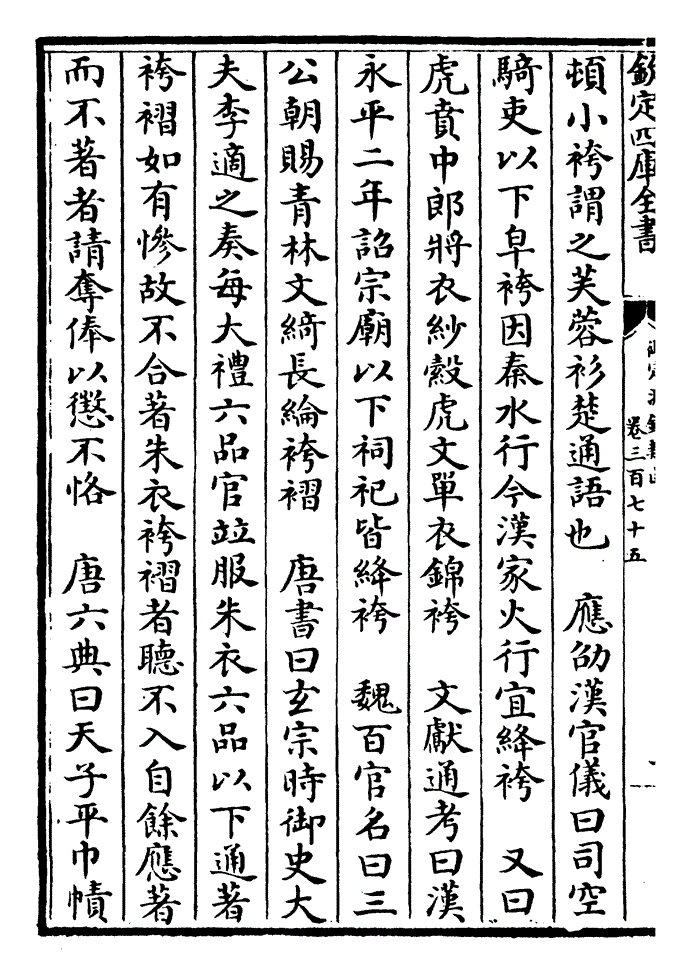 欽定四庫全書
卷三百七十五
頓小袴謂之芙蓉衫楚通語也　應劭漢官儀曰司空
騎吏以下皁袴因秦水行今漢家火行宜絳袴　又曰
虎賁中郎將衣紗縠虎文單衣錦袴　文獻通考曰漢
永平二年詔宗廟以下祠祀皆絳袴　魏百官名曰三
公朝賜青林文綺長綸袴褶　唐書曰玄宗時御史大
夫李適之奏每大禮六品官竝服朱衣六品以下通著
袴褶如有慘故不合著朱衣袴褶者聽不入自餘應著
而不著者請奪俸以懲不恪　唐六典曰天子平巾幘